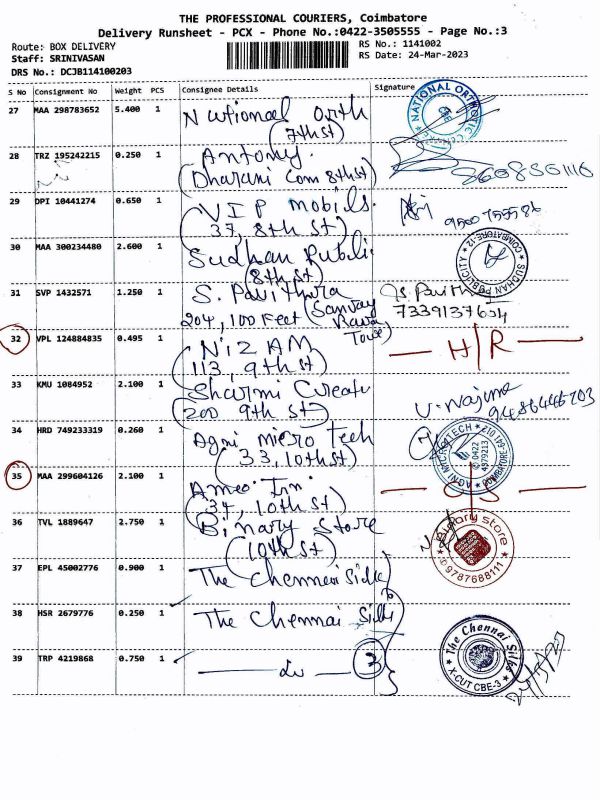 THE PROFESSIONAL COURIERS, Coimbatore
Delivery Runsheet - PCX - Phone No.:0422-3505555 - Page No.:3
Route: BOX DELIVERY
Staff: SRINIVASAN
DRS No.: DCJB114100203
RS No.: 1141002
RS Date: 24-Mar-2023
S No Consignment No Weight PCS Consignee Details Signature
27 MAA 298783652 5.400 1 National Orth
(7th st)
NATIONAL ORTHOTIC
28 TRZ 195242215 0.250 1 Antony.
(Dharani Com 8th st)
29 DPI 10441274 0.650 1 VIP Mobils.
(37, 8th st)
30 MAA 300234480 2.600 1 Sudhan Publi.
(8th st)
SUDHAN PUBLICITY COIMBATORE-12
31 SVP 1432571 1.250 1 S. Pavithra S. Pavith
204, 100 Feet 7339137604
32 VPL 124884835 0.495 1 NIZAM H/R
(113, 9th st)
33 KMU 1084952 2.100 1 Sharmi Creati
(200 9th st) 9486446203
34 HRD 749233319 0.260 1 Agni micro tech
(33, 10th st)
AGNI MICRO TECH
0422
4379213
35 MAA 299604126 2.100 1
(34, 10th st)
36 TVL 1889647 2.750 1 Binary Store
(10th st)
Binary store
9787688111
37 EPL 45002776 0.900 1 The Chennai Silks
38 HSR 2679776 0.250 1 The Chennai Silks
39 TRP 4219868 0.750 1 do 3
The Chennai Silks
X-CUT CBE-3